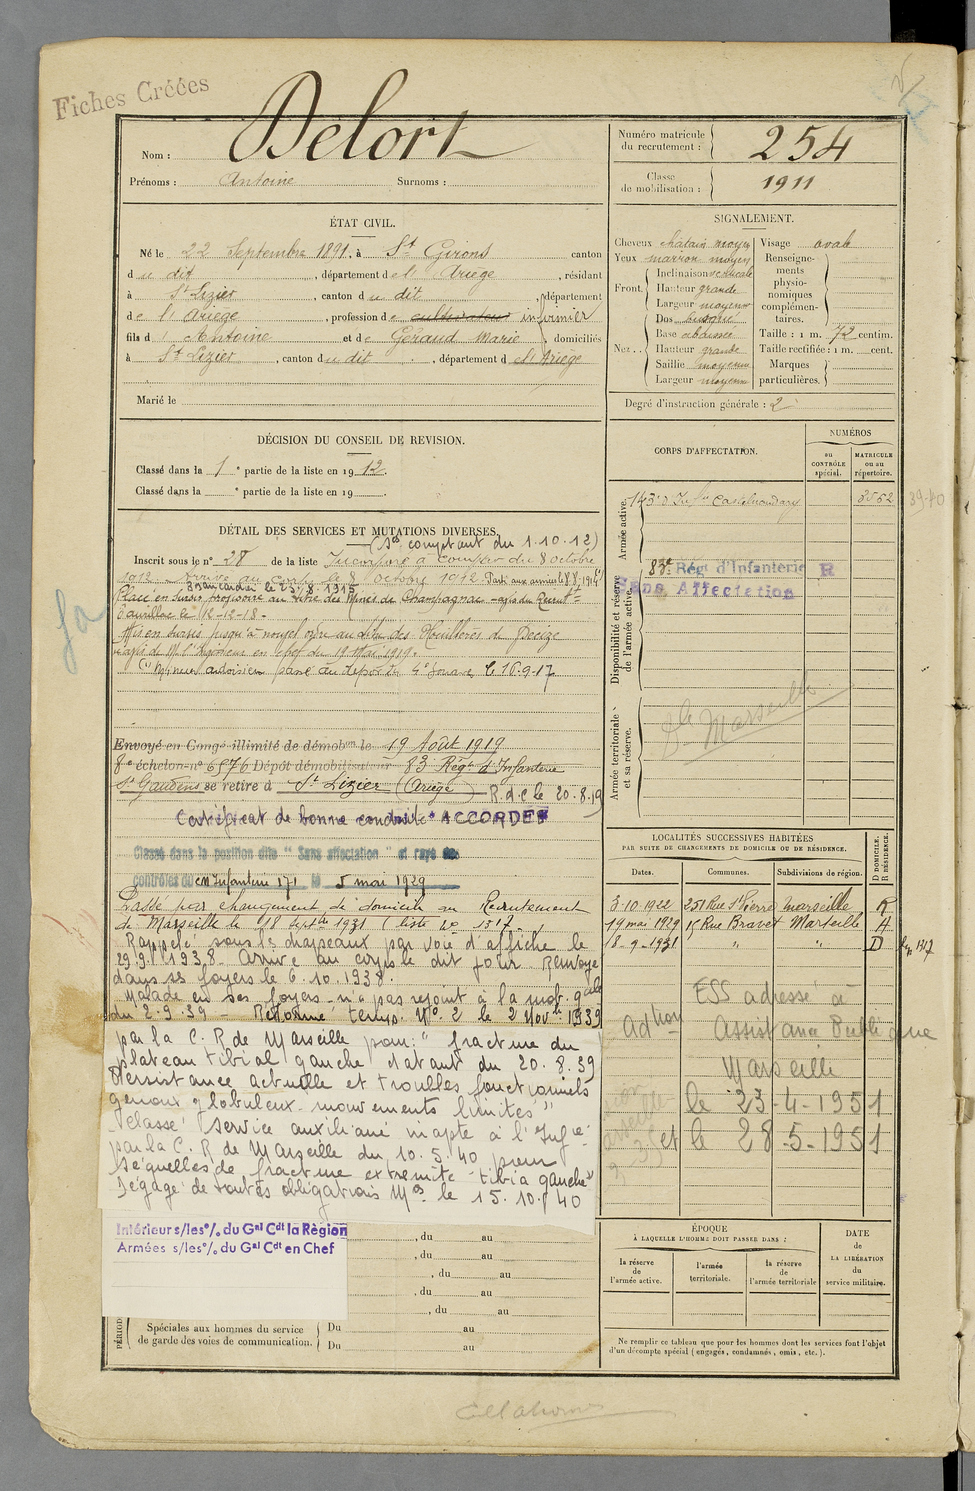 Fiches Créées
Nom : Delort
Prénoms : Antoine Surnoms :
Numéro matricule du recrutement : 254
Classe de mobilisation : 1911
ÉTAT CIVIL.
Né le 22 Septembre 1891, à St Girons canton
du dit, département de l'Ariège, résidant
à St Lizier, canton du dit, département
de l'Ariège, profession de cultivateur infirmier
fils d'Antoine et de Géraud Marie domiciliés
à St Lizier, canton du dit, département de l'Ariège
Marié le
SIGNALEMENT.
Cheveux chatain moyen
Yeux marron moyen
Front. Inclinaison verticale
Hauteur grande
Largeur moyenne
Nez. Dos busqué
Base abaissée
Hauteur grande
Saillie moyenne
Largeur moyenne
Visage ovale
Renseignements physionomiques complémentaires.
Taille : 1 m. 72 centim.
Taille rectifiée : 1 m. cent.
Marques particulières.
Degré d'instruction générale : 2
DÉCISION DU CONSEIL DE REVISION.
Classé dans la 1e partie de la liste en 1912.
Classé dans la e partie de la liste en 19
CORPS D'AFFECTATION.
NUMÉROS
au CONTRÔLE spécial.
MATRICULE ou au répertoire.
Armée active.
143e d'Infie Castelnaudary 3552
39-40
Disponibilité et réserve de l'armée active.
83e Régt d'Infanterie R
Sans Affectation
Armée territoriale et sa réserve.
Marseille
DÉTAIL DES SERVICES ET MUTATIONS DIVERSES.
(Ses comptant du 1.10.12)
Inscrit sous le n° 28 de la liste Incorporé à compter du 8 octobre
1912. Arrivé au corps le 8 Octobre 1912. Parti aux armées le 8.8.1914
le 23.8.1915
Placé en sursis au titre des Mines de Champagnac
Aurillac le 12-12-18.
Mis en sursis jusqu'à nouvel ordre au titre des Houillères de Decize
avis de Mr l'Ingénieur en chef du 19 Mai 1919.
passé au dépôt du le 16.9.17
Envoyé en Congé illimité de démobon le 19 Août 1919
8e échelon n° 6576 Dépôt démobilisateur 83 Régt d'Infanterie
St Gaudens se retire à St Lizier (Ariège) R.d.c le 20.8.19
Certificat de bonne conduite "ACCORDÉ"
Classé dans la position dite "Sans affectation" et rayé des
contrôles du cm Infanterie 171 le 5 mai 1929
Passé par changement de domicile au Recrutement
de Marseille le 18 Septbre 1931 (liste n° 1317.
Rappelé sous les drapeaux par voie d'affiche le
29.9.1938. Arrivé au corps le dit jour Renvoyé
dans ses foyers le 6.10.1938.
Malade en ses foyers n'a pas rejoint à la mob. gale
du 2.9.39 - Réformé temp. No 2 le 2 Novbre 1939
par la C.R de Marseille pour : "fracture du
plateau tibial gauche datant du 20.8.39
Persistance actuelle et troubles fonctionnels
genoux globuleux - mouvements limités"
Classé service auxiliaire inapte à l'Infie
par la C.R de Marseille du 10.5.40 pour
Séquelles de fracture extrémité tibia gauche
Dégagé de toutes obligations Mres le 15.10.40
LOCALITÉS SUCCESSIVES HABITÉES
PAR SUITE DE CHANGEMENTS DE DOMICILE OU DE RÉSIDENCE.
Dates. Communes. Subdivisions de région. D DOMICILE. R RÉSIDENCE.
3.10.1922 251 Rue St Pierre Marseille R
19 mai 1929 15 Rue Bravet Marseille
18-9-1931 " " D
1317
ESS adressé à
Assistance Publique
Marseille
le 23-4-1951
et le 28-5-1951
Intérieur s/les °/. du Gal Cdt la Région
Armées s/les °/. du Gal Cdt en Chef
, du au
, du au
, du au
, du au
, du au
Spéciales aux hommes du service de garde des voies de communication. Du au
Du au
ÉPOQUE
À LAQUELLE L'HOMME DOIT PASSER DANS :
la réserve de l'armée active.
l'armée territoriale.
la réserve de l'armée territoriale
DATE de LA LIBÉRATION du service militaire.
Ne remplir ce tableau que pour les hommes dont les services font l'objet
d'un décompte spécial (engagés, condamnés, omis, etc.).